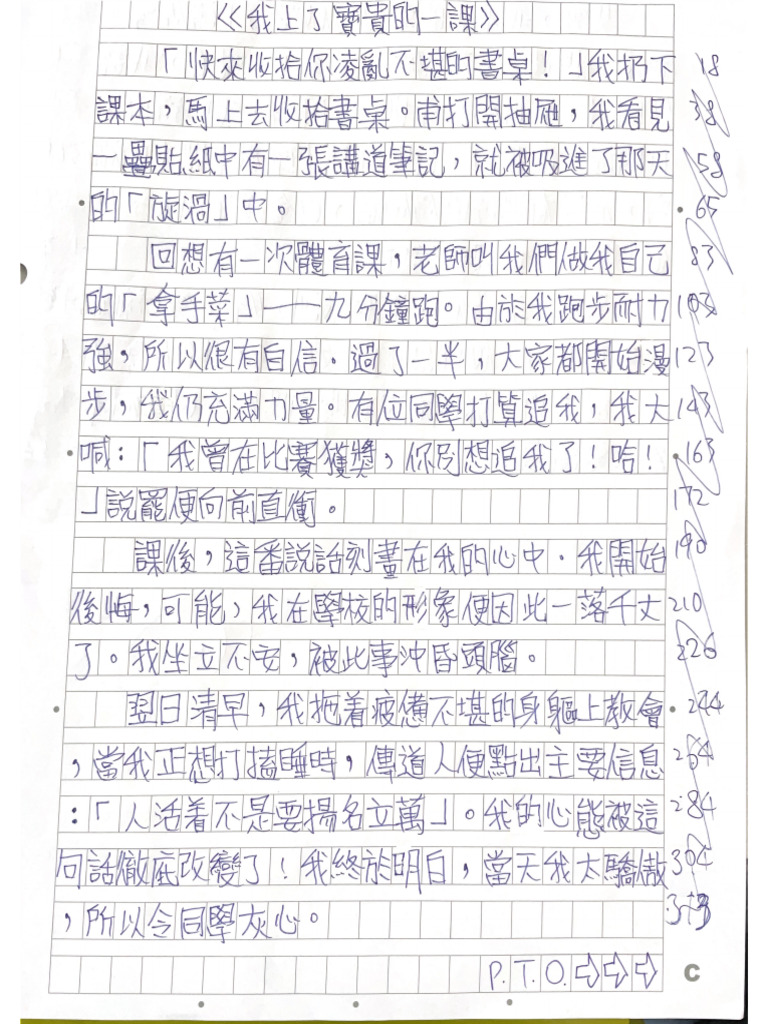 《我上了寶貴的一課》
「快來收拾你凌亂不堪的書桌！」我扔下 18
課本，馬上去收拾書桌。甫打開抽屜，我看見 38
一疊貼紙中有一張講道筆記，就被吸進了那天 58
的「旋渦」中。 65
回想有一次體育課，老師叫我們做我自己 83
的「拿手菜」——九分鐘跑。由於我跑步耐力 103
強，所以很有自信．過了一半，大家都開始漫 123
步，我仍充滿力量。有位同學打算追我，我大 143
喊：「我曾在比賽獲獎，你別想追我了！哈！ 163
」說罷便向前直衝。 172
課後，這番說話刻畫在我的心中．我開始 190
後悔，可能，我在學校的形象便因此一落千丈 210
了。我坐立不安，被此事沖昏頭腦。 226
翌日清早，我拖着疲憊不堪的身軀上教會 244
，當我正想打瞌睡時，傳道人便點出主要信息 264
：「人活着不是要揚名立萬」。我的心態被這 284
句話徹底改變了！我終於明白，當天我太驕傲 304
，所以令同學灰心。 313
P.T.O.⇨⇨⇨ C